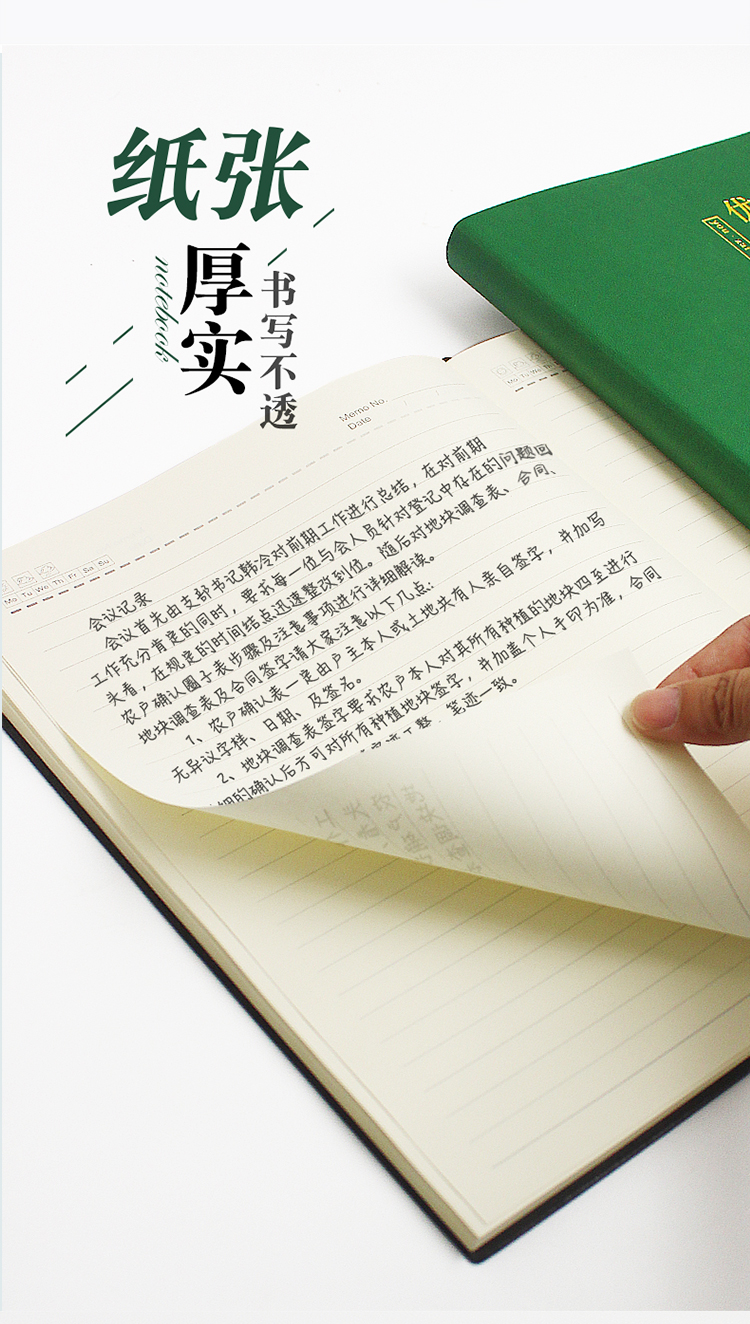 纸张
厚实
书写不透
notebook
Memo No.
Date
Mo Tu We Th Fr Sa Su
会议记录
会议首先由支部书记韩冷对前期工作进行总结，在对前期
工作充分肯定的同时，要求每一位与会人员针对登记中存在的问题回
头看，在规定的时间结点迅速整改到位。随后对地块调查表、合同、
农户确认圈子表步骤及注意事项进行详细解读。
地块调查表及合同签字请大家注意以下几点：
1、农户确认表一定由户主本人或土地共有人亲自签字，并加写
无异议字样、日期、及签名。
2、地块调查表签字要求农户本人对其所有种植的地块四至进行
细的确认后方可对所有种植地块签字，并加盖个人手印为准，合同
笔迹一致。
Mo Tu We
优
you